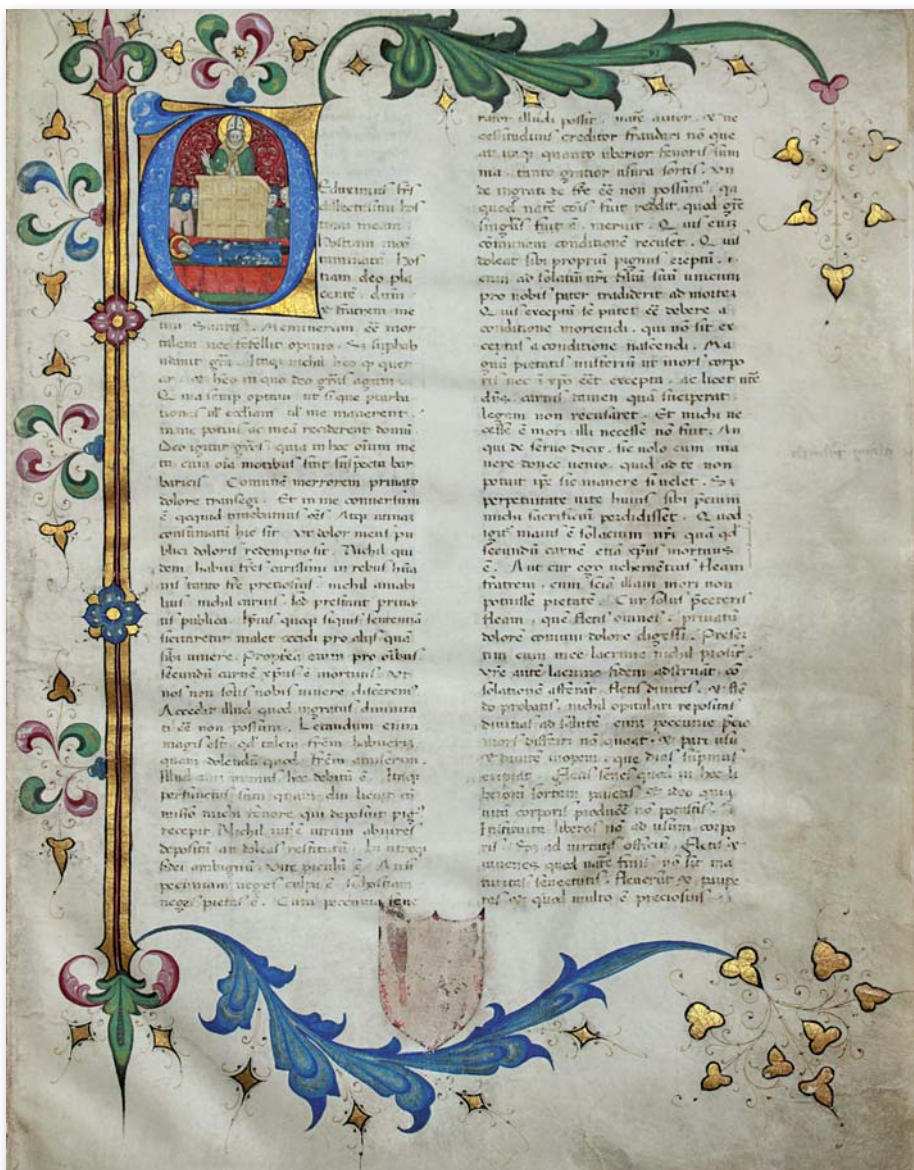 Eduximus frēs
dilectissimi hos
tiam meam
hostiam incō
taminatā hos
tiam deo pla
centē dnm
& fratrem me
um Satirū. Memineram eē mor
talem nec fefellit opinio. Sȝ suphab
undauit grā. Itaqȝ nichil heo qƺ quer
ar. & heo in quo deo grās agam.
Q ma semp optaui ut sique pturba
tiones ul eccliam ul me manerent.
in me potius ac meā reciderent domū.
Deo igitur grēs quia in hoc oīum me
tu cum oīa motibus sint suspecta bar
baricis. Comunē merrorem priuato
dolore transegi. Et in me conuersum
ē qcquid timebamus oēs. Atqȝ utinaȝ
consumatū hic sit. Vt dolor meus pu
blici doloris redemptio sit. Nichil qui
dem habui frēs carissimi in rebus hūa
nis tanto frē preciosius nichil amabi
lius nichil carius. Sed prestant priua
tis publica. Ipsius quoqȝ siquis sententiā
sicitaretur mallet occidi pro alijs quā
sibi uiuere. Proptea enim pro oībus
secundū carnē xpūs ē mortuus. Vt
nos non solis nobis uiuere discerem⁹
Accedit illud quod ingratus diuinita
ti eē non possum. Letandum enim
magis est qd talem frēm habuerȝ
quam dolendū quod frēm amiserim.
Illud enim munus hoc debitū ē. Itaqȝ
perfunctus sum quam diu licuit cō
misso michi fenore qui deposuit pig⁹
recepit. Nichil int̄ ē utrum abiures
depositū an doleas restitutū. In utroqȝ
fidei ambiguū. Vite piculū ē. An si
pecuniam neges culpa ē si hostiam
neges pietas ē. Cum pecunia fene
rator illudi possit. naтē autor. & ne
cessitudinis creditor fraudari nō que
at. itaqȝ quanto uberior fenoris sum
ma. tanto gratior usura sortis. Vn
de ingrati de frē eē non possum⁹ qa
quod natē cōis fuit reddit. quod grē
singlis fuit ē meruit. Q uis enīȝ
comunem conditionē recuset. Q uis
doleat sibi propriū pignus ereptū.
cum ad solatiū nri filiū suū unicum
pro nobis pater tradiderit ad morteȝ
Q uis exceptū se putet eē debere a
conditione moriendi. qui nō sit ex
ceptus a conditione nascendi. Ma
gnū pietatis misterium ut mors corpo
ris nec ī xpo eēt excepta. ac licet natē
dn̄s. carnis tamen quā susceperat
legem non recusaret. Et michi ne
cesse ē mori illi necesse nō fuit. An
qui de seruo dicit. sic uolo eum ma
nere donec uenio. quid ad te non
potuit ipse sic manere si uellet. Sȝ
perpetuitate uite huius sibi pcium
michi sacrificiū perdidisset. Q uod
igit̄ maius ē solacium nri quā qd
secundū carnē etiā xpūs mortuus
ē. Aut cur ego uehemētius fleam
fratrem. cum sciā illam mori non
potuisse pietatē. Cur solus p̄ceteris
fleam. que fletis omnes. priuatū
dolorē comuni dolore digessi. Preser
tim cum mee lacrime nichil prosīt.
vrē autē lacrime fidem adstruāt. cō
solationē afferāt. fletis diuites. & flē
do probatis. nichil opitulari repositas
diuitias ad salutē. cum peccunie pcio
mors differri nō queat. & pari usu
& diuitē inopem. que dies supmus
eripiat. fletis senes quod in hoc li
berorū sortem pauetis. Et ideo qua
uitā corporis producē nō potestis.
Instituite liberos nō ad usum corpo
ris. Sȝ ad uirtutis officiū. fletis &
iuuenes. quod natē finis nō sit ma
turitas senectutis. fleuerūt & paupe
res & quod multo ē preciosius